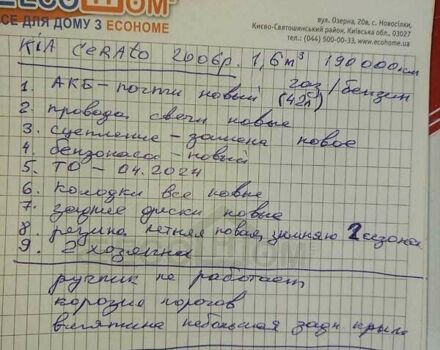 ECOHOM®
СЕ ДЛЯ ДОМУ З ECOHOME
вул. Озерна, 20в, с. Новосілки,
Києво-Святошинський район, Київська обл., 03027
тел.: (044) 500-00-33, www.ecohome.c
KIA CERATO 2006р. 1,6 m³ 190 000 км
газ / бензин
1. АКБ - почти новый (42л)
2. провода, свечи новые
3. сцепление - замена новое
4. бензонасос - новый
5. ТО - 04.2024
6. колодки все новые
7. задние диски новые
8. резина летняя новая, зимняя 2 сезона
9. 2 хозяина
ручник не работает
корозия порогов
вмятина небольшая задн крыло